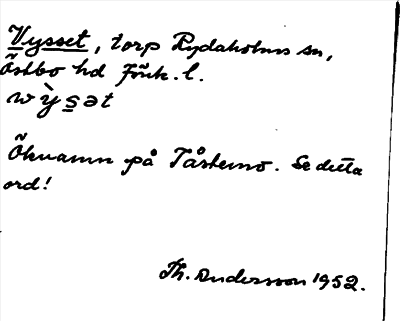 Vysset, torp Rydaholms sn,
Östbo hd Jönk. l.
wỳs̲ət
Öknamn på Tåstemo. Se detta
ord!
Th. Andersson 1952.